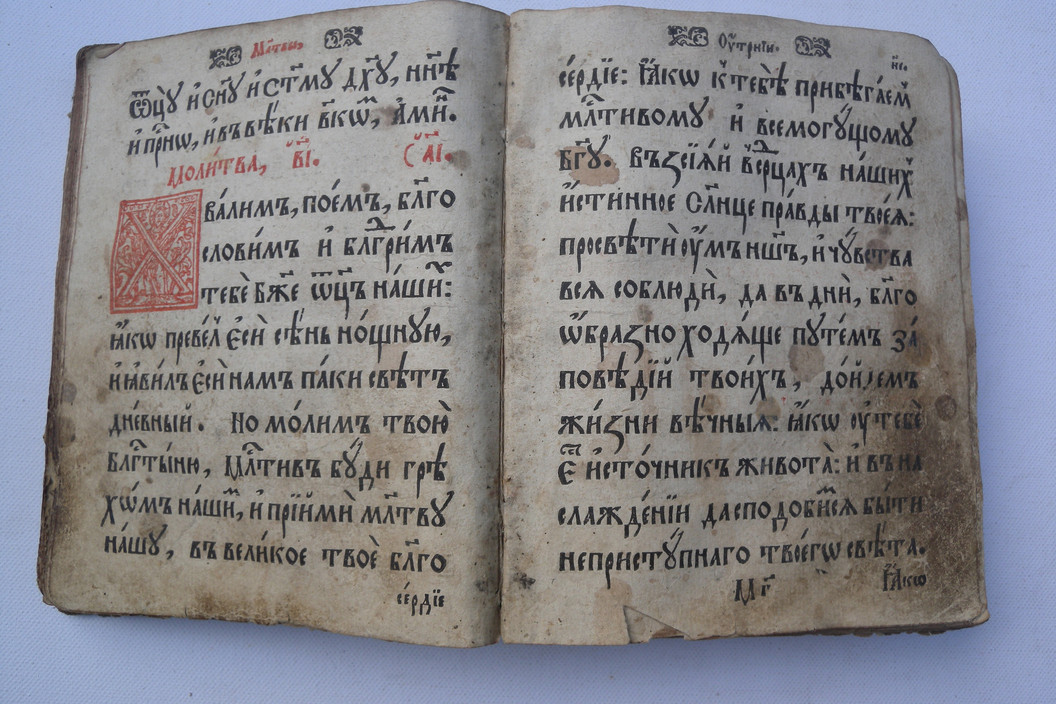 Мл҃твы,
ѿцꙋ и҆ сн҃ꙋ и҆ ст҃мꙋ дх҃ꙋ, нн҃ѣ
и҆ при́сѡ, и҆ въ вѣ́ки вѣ́кѡⷨ, а҆ми́нь.
Моли́тва, в҃і. С҃ аі.
Хвалимъ, пое́мъ, бл҃го
слови́мъ и҆ бл҃года́римъ
тебѐ бж҃е ѿц҃ъ на́шиⷯ:
ꙗ҆́кѡ преве́лъ є҆сѝ сѣ́нь но́щную,
и҆ ꙗ҆ви́лъ є҆сѝ на́мъ па́ки свѣ́тъ
дне́вный. Но мо́лимъ твою̀
бл҃гⷭ҇ты́ню, мл҃тивъ бꙋ́ди грѣ
хѡ́мъ на́шиⷨ, и҆ прїимѝ мл҃твꙋ
на́шꙋ, въ вели́кое твоѐ бл҃го
се́рдїе
Оу҆́трнїи.
се́рдїе: Ꙗ҆́кѡ к̾ тебѣ̀ прибѣга́емъ
мл҃тивомꙋ и҆ всемогꙋ́щомꙋ
бг҃ꙋ. въꙁсїѧ́й в̾ срⷣцахъ на́шихъ
и҆́стинное Сл҃нце пра́вды твоеѧ̀:
просвѣтѝ оу҆́мъ нш҃ъ, и҆ чꙋ́вства
всѧ соблюдѝ, да въ днѝ, бл҃го
ѡ҆́браꙁно ходѧ́ще пꙋте́мъ ꙁа́
повѣдїй твои́хъ, до́йдемъ
жи́ꙁни вѣ́чныѧ: ꙗ҆́кѡ оу҆ тебѐ
є҆сть и҆сто́чникъ живота̀: и҆ въ на
слажде́нїи да сподо́бимсѧ бы́ти
непристꙋ́пнаго твоегѡ̀ свѣ́та.
М҃г Ꙗ҆́кѡ